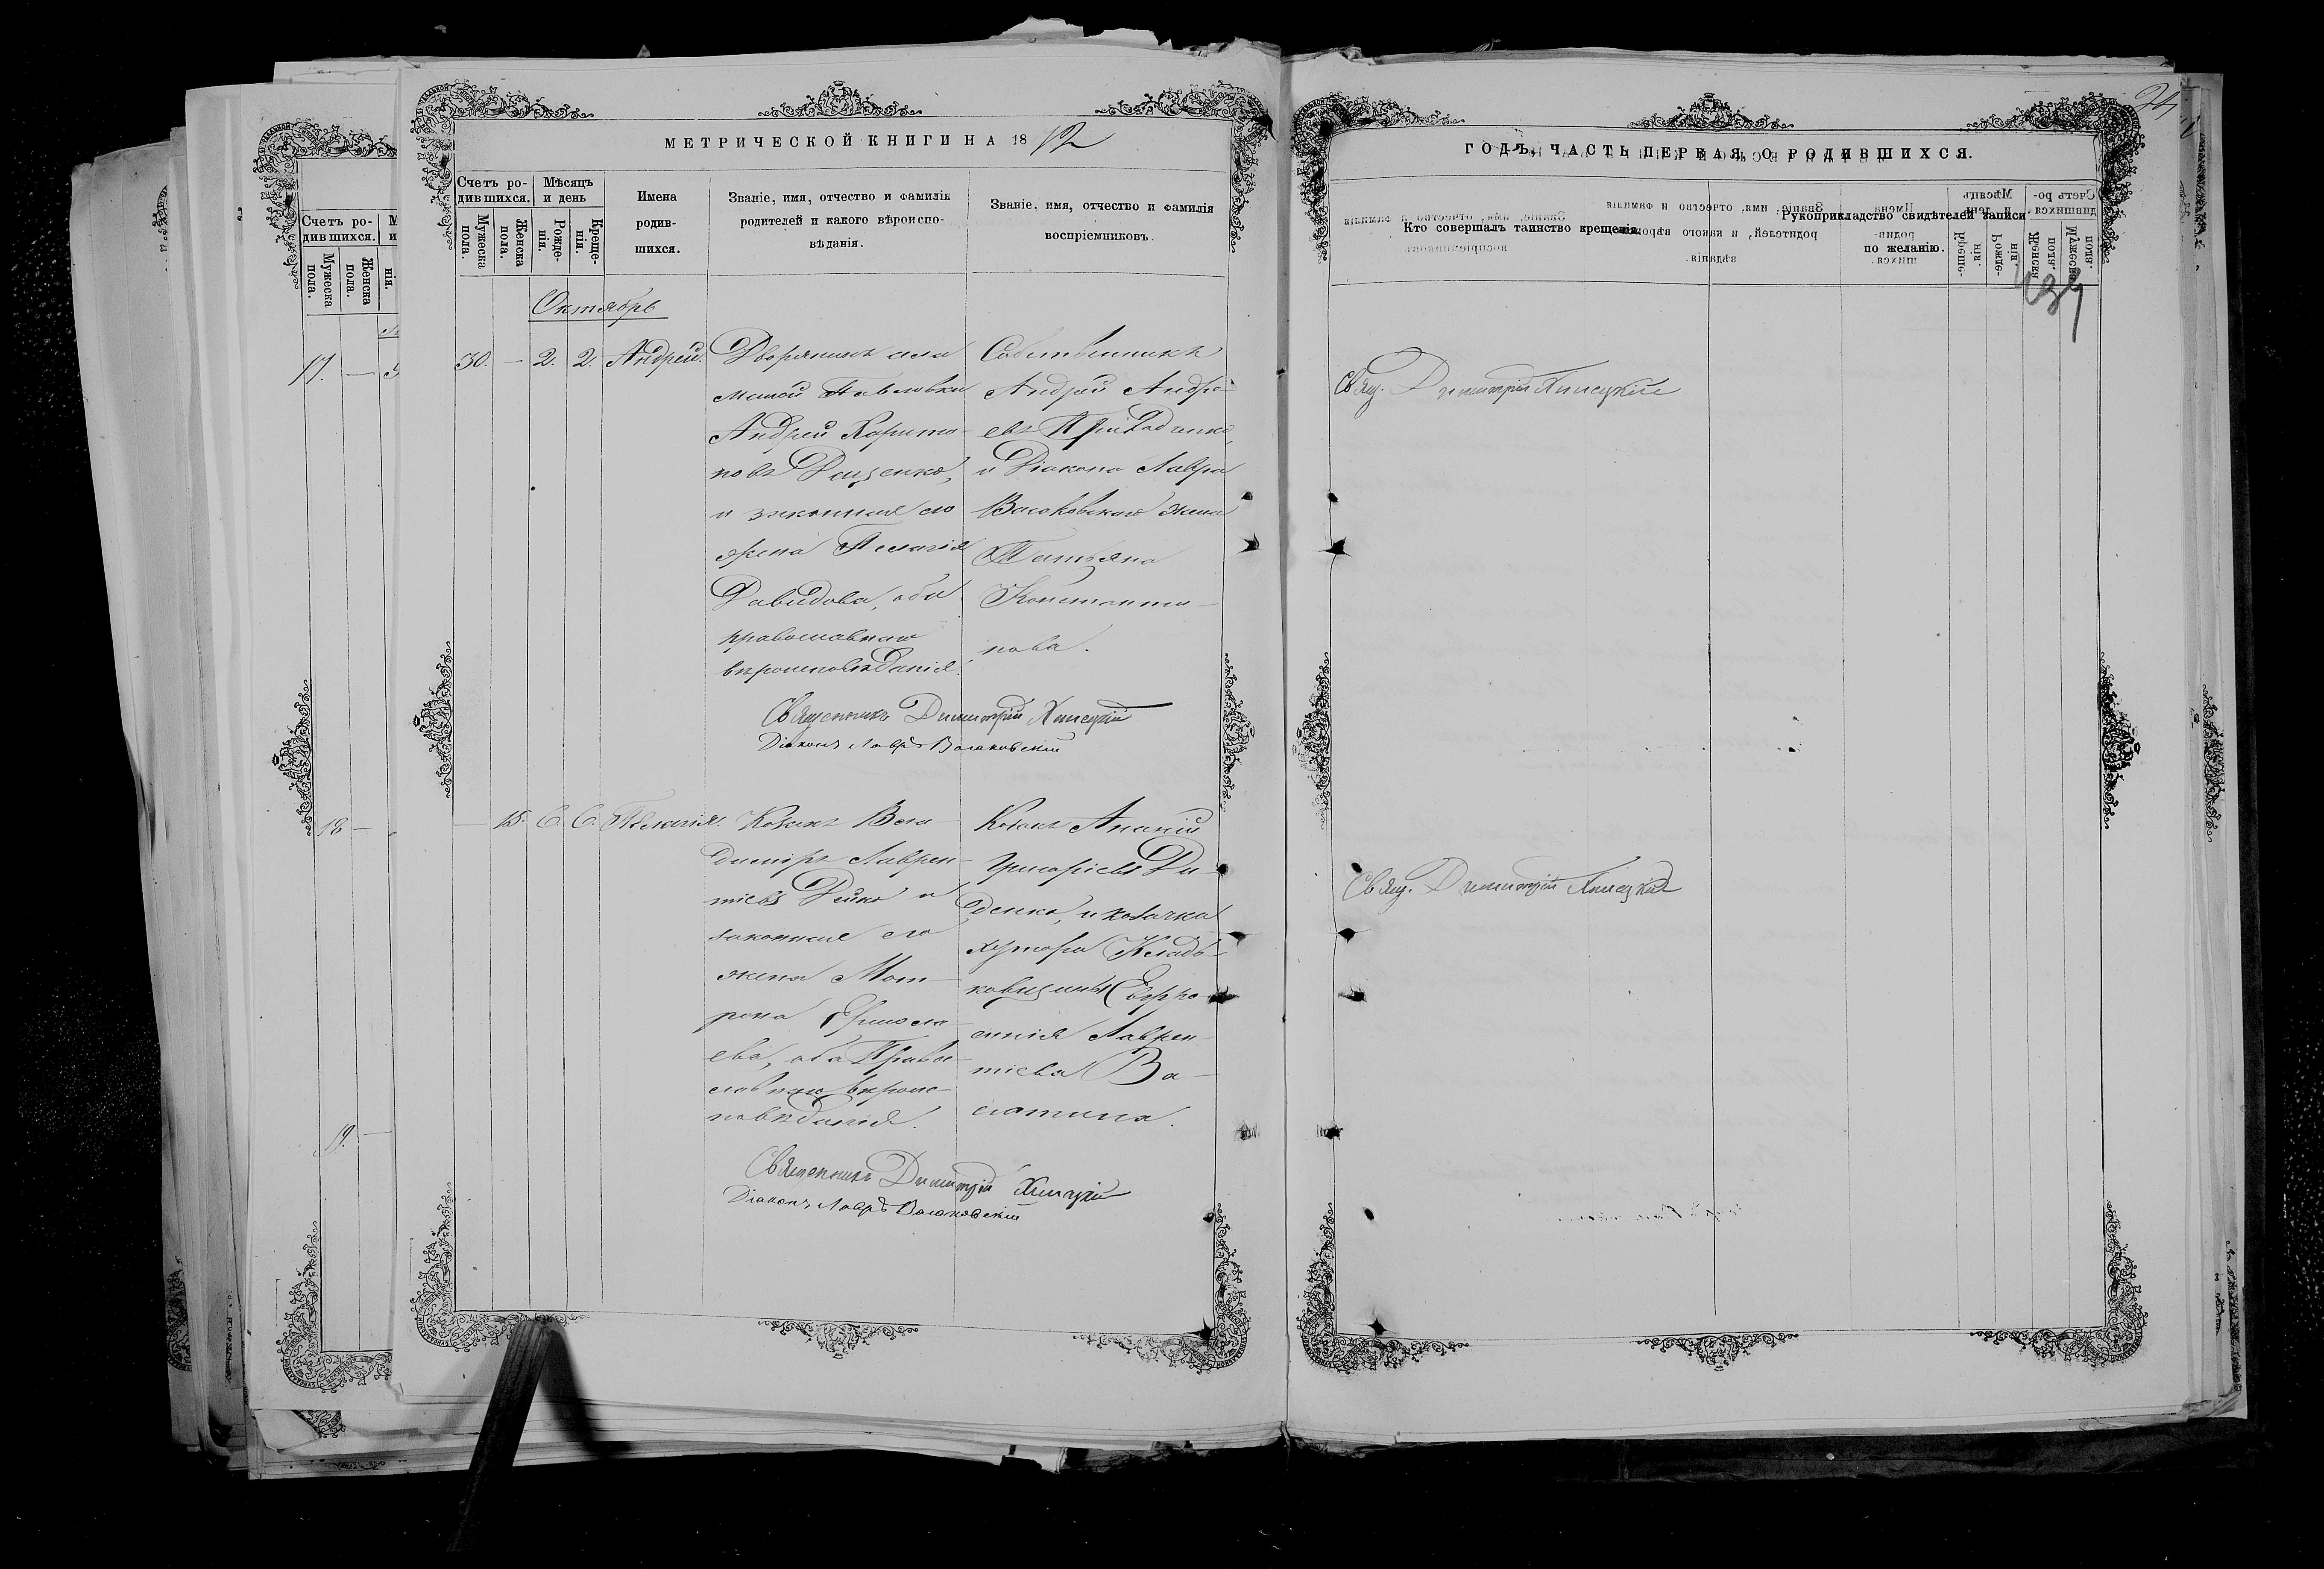 МЕТРИЧЕСКОЙ КНИГИ НА 1872
Счетъ родившихся.
Мужеска пола.
Женска пола.
Мѣсяцъ и день
Рожденія.
Крещенія.
Имена родившихся.
Званіе, имя, отчество и фамилія
родителей и какого вѣроиспо-
вѣданія.
Званіе, имя, отчество и фамилія
воспріемниковъ.
Октябрь
30. — 2. 2. Андрей.
Дворянинъ села
Малой Павловки
Андрей Харито-
новъ Дищенко,
и законная его
жена Пелагія
Давидова, оба
православнаго
вѣроисповѣданія.
Собственникъ
Андрей Андре-
евъ Приходченко,
и Діакона Лавра
Васаковскаго жена
Татьяна
Константи-
нова.
Священникъ Димитрій
Діаконъ Лавръ Васаковскій
— 15. 6. 6. Пелагія.
Козакъ Вла-
диміръ Лаврен-
тіевъ Дейко и
законная его
жена Мат-
рона Ермола-
ева, оба Право-
славнаго вѣроис-
повѣданія.
Козакъ Ананій
Григоріевъ Ди-
денко, и козачка
хутора Кладь-
ковщины Евфро-
синія Лаврен-
тіева Ва-
Священникъ Димитрій
Діаконъ Лавръ Васаковскій
ГОДЪ, ЧАСТЬ ПЕРВАЯ, О РОДИВШИХСЯ.
Кто совершалъ таинство крещенія.
Рукоприкладство свидѣтелей записи
по желанію.
Свящ. Димитрій
Свящ. Димитрій
Счетъ ро-
дившихся.
Мужеска пола.
Женска пола.
17. —
18 —
19. —